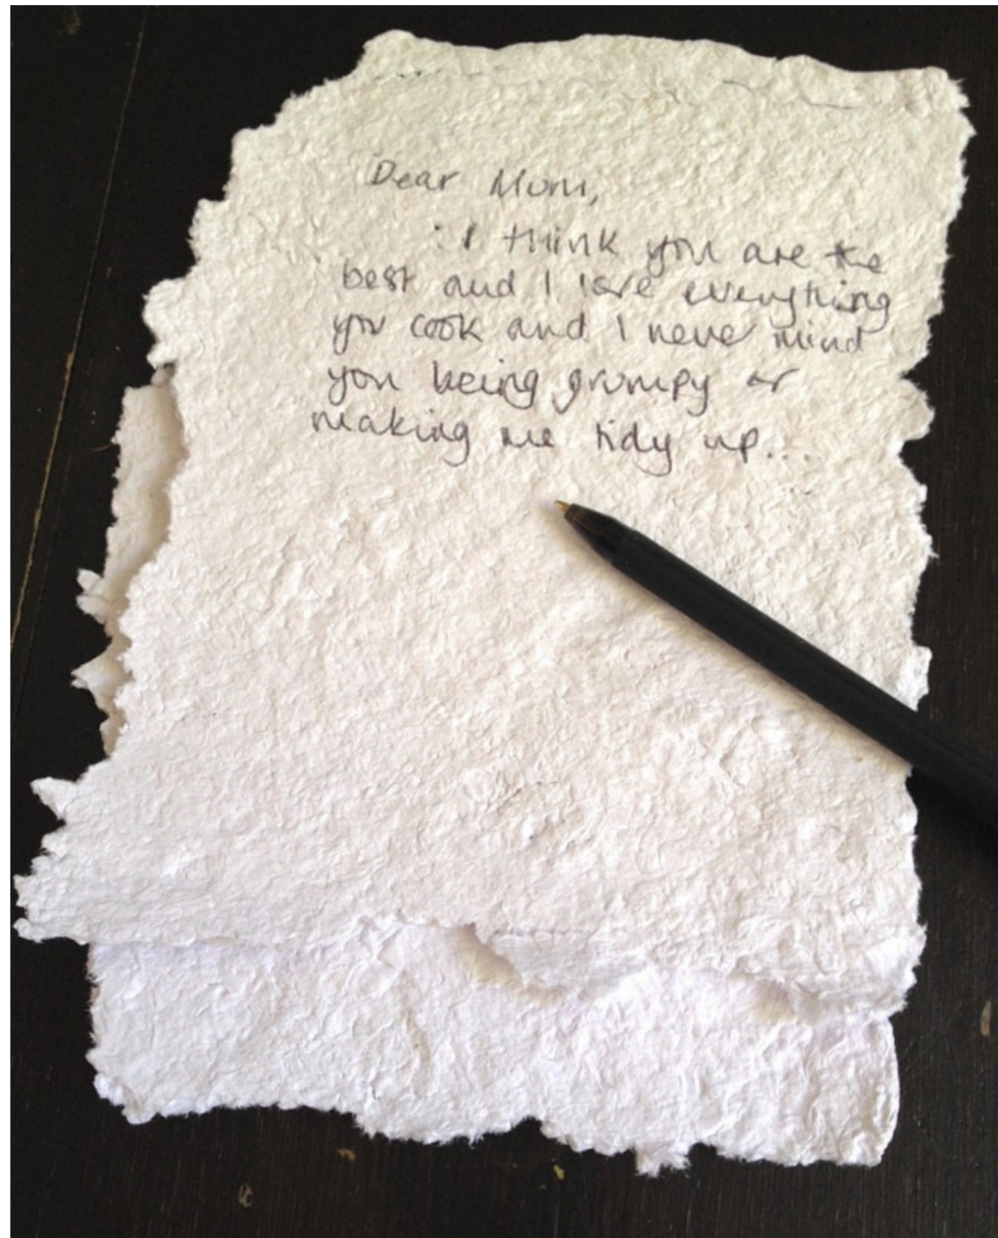 Dear Mum,
: I think you are the
best and I love everything
you cook and I never mind
you being grumpy or
making me tidy up...